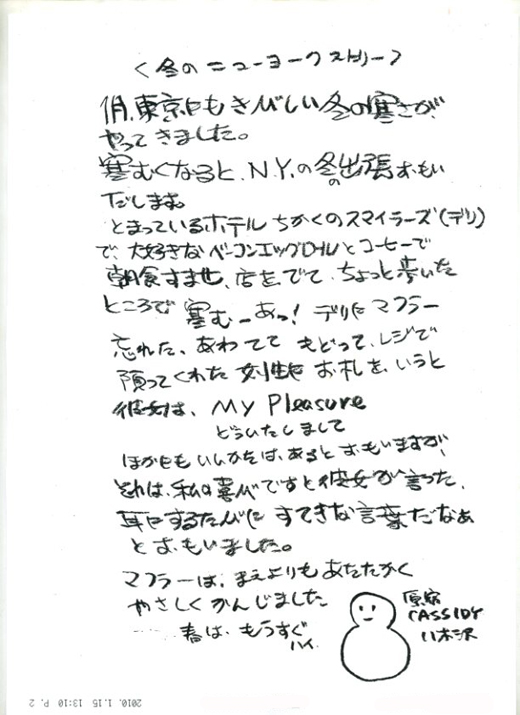 〈冬のニューヨークストリー〉
1月、東京にもきびしい冬の寒さが
やってきました。
寒むくなると、N.Y.の冬の出張おもい
だします。
とまっているホテル ちかくのスマイラーズ(デリ)
で、大好きなベーコンエッグロールとコーヒーで
朝食すませ、店をでて、ちょっと歩いた
ところで 寒むーあっ! デリにマフラー
忘れた、あわてて もどって、レジで
預ってくれた 女性に お札を、いうと
彼女は、My Pleasure
どういたしまして
ほかにもいいかたは、あるとおもいますが、
それは、私の喜びですと彼女が言った、
耳にするたんびに すてきな言葉だなぁ
とおもいました。
マフラーは、まえよりも あたたかく
やさしく かんじました
……春は、もうすぐ
ハイ.
原宿
CASSIDY
八木沢
2010. 1.15 13:10 P. 2